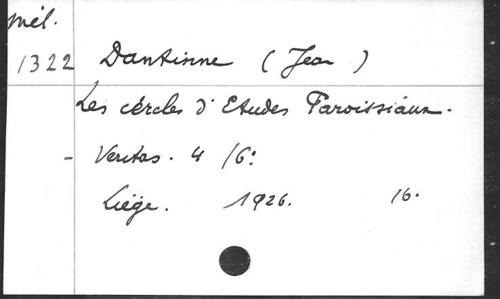 Mél.
1322 Dantinne (Jean)
Les cércles d'Etudes Paroissiaux.
- Veritas. 4 /6°
Liége. 1926. 16.